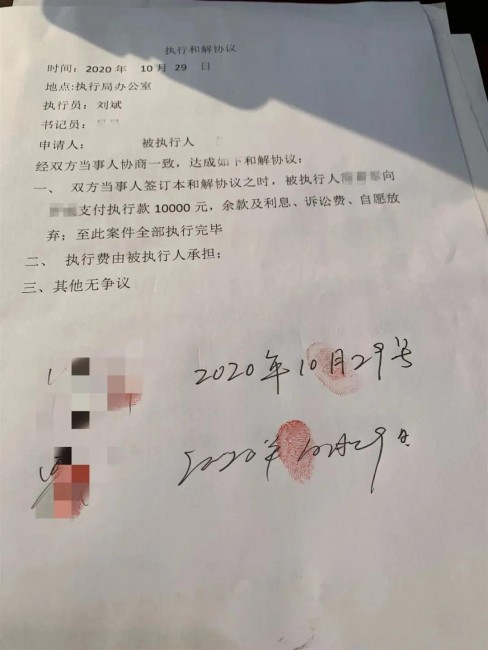 执行和解协议
时间：2020 年 10 月 29 日
地点:执行局办公室
执行员：刘斌
书记员：
申请人： 被执行人
经双方当事人协商一致，达成如下和解协议：
一、 双方当事人签订本和解协议之时，被执行人 向
支付执行款 10000 元，余款及利息、诉讼费、自愿放
弃；至此案件全部执行完毕
二、 执行费由被执行人承担；
三、其他无争议
2020年10月29号
2020年10月29日